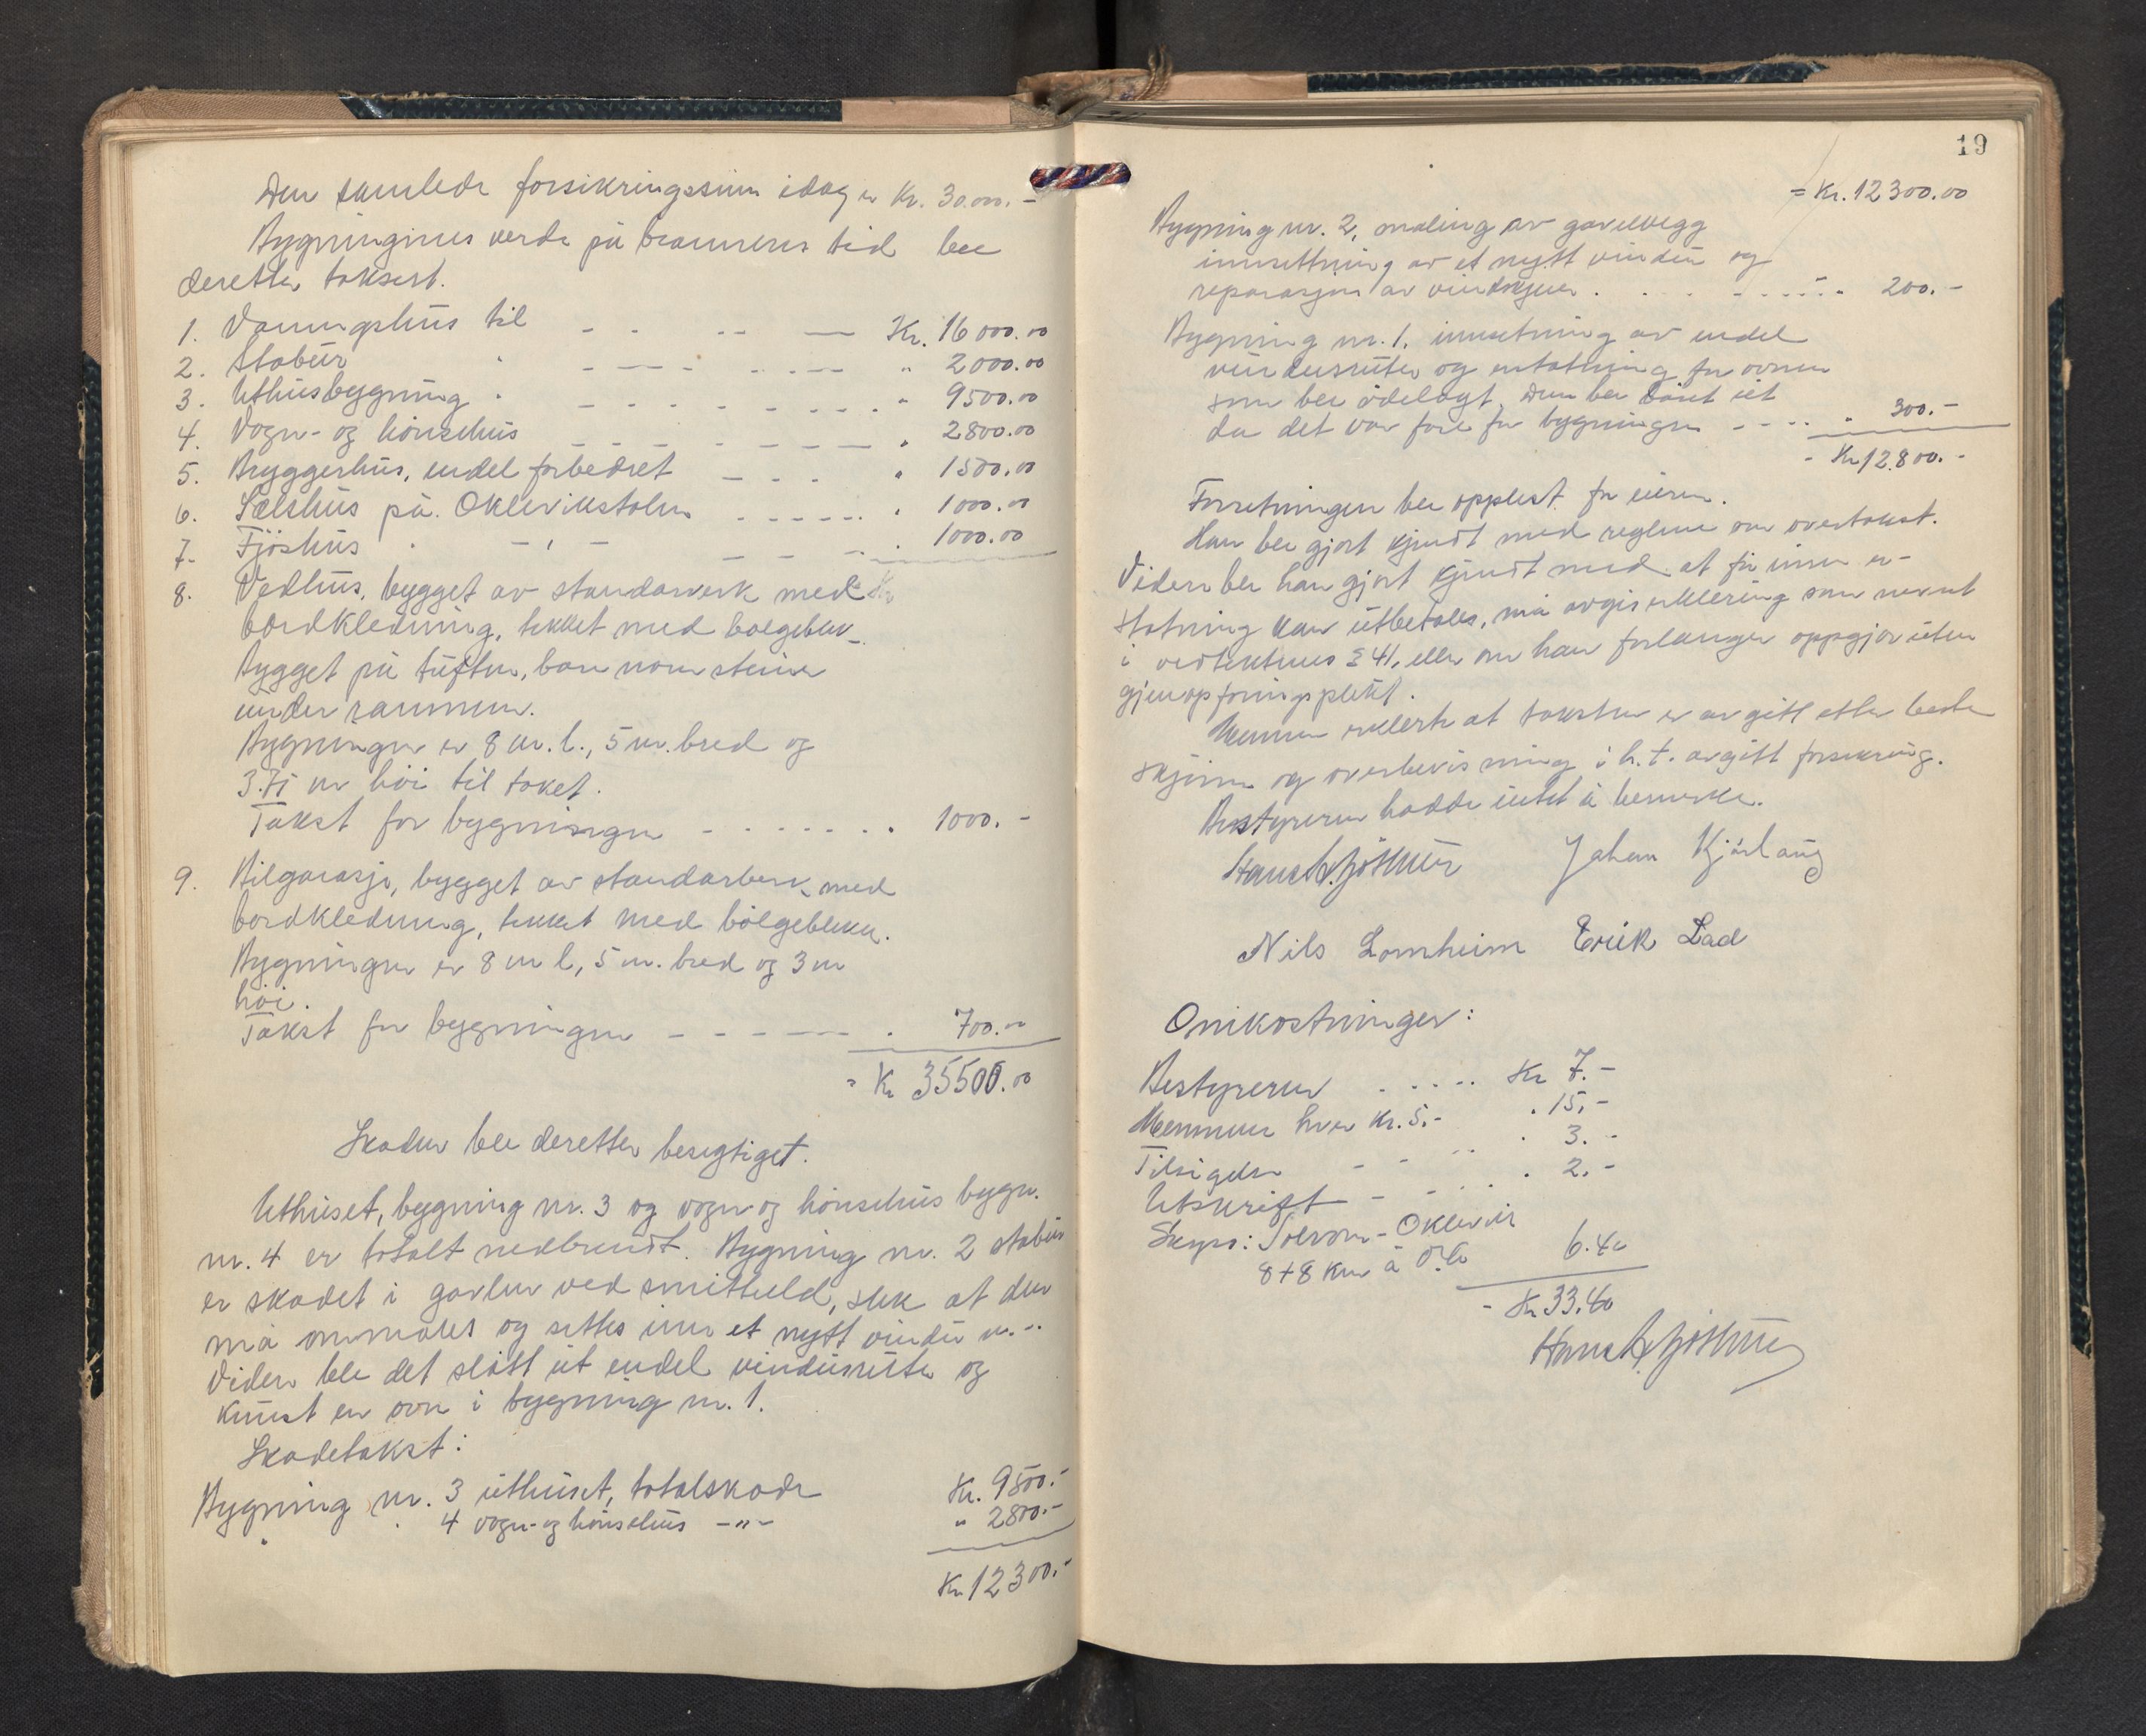 Den samlede forsikringssum idag er Kr. 30.000.-
Bygningenes verde på brannens tid ble
deretter taksert.
1. Vaaningshus til Kr. 16000.00
2. Stabur " 2000.00
3. Uthusbygning " 9500.00
4. Vogn- og hönsehus " 2800.00
5. Bryggerhus, endel forbedret " 1500.00
6. Selshus på Oklevikstølen " 1000.00
7. Fjöshus - " - 1000.00
8. Vedhus, bygget av standarverk med
bordkledning, tekket med bølgeblekk.
Bygget på tuften, bare noen steiner
under rammen.
Bygningen er 8 m. l., 5 m. bred og
3.75 m höi til taket.
Takst for bygningen 1000.-
9. Bilgarasje, bygget av standarverk med
bordkledning, tekket med bölgeblekk.
Bygningen er 8 m l, 5 m. bred og 3 m
höi.
Takst for bygningen 700.00
= Kr 35500.00
Skaden ble deretter besigtiget.
Uthuset, bygning nr. 3 og vogn og hönsehus bygn.
nr. 4 er totalt nedbrendt. Bygning nr. 2 stabur
er skadet i gavlen ved smitteild, slik at den
må ommales og settes inn et nytt vindu m.-.
Viden ble det slått ut endel vindusruter og
knust en ovn i bygning nr. 1.
Skadetakst:
Bygning nr. 3 uthuset, totalskade Kr. 9500.-
" " 4 vogn- og hönsehus -"- " 2800.-
Kr. 12300.-
19
= Kr. 12300.00
Bygning nr. 2, maling av gavelvegg
innsettning av et nytt vindu og
reparasjon av vindskjeier 200.-
Bygning nr. 1. innsetning av endel
vindusruter og erstatning for ovnen
som ble ödelagt. Den ble båret ut
da det var fare for bygningen " 300.-
- Kr 12.800.-
Forretningen ble opplest for eieren.
Han ble gjort kjendt med reglene om overtakst.
Viden ble han gjort kjendt med at før innen er-
statning kan utbetales, må avgis erklering som nevnt
i vedtektenes § 41, eller om han forlanger oppgjør uten
gjenopføringsplikt.
Mennene erklerte at taksten er avgitt etter beste
skjönn og overbevisning i h. t. avgitt forsikring.
Bestyreren hadde intet å bemerke.
Johan Kjörlaug
Nils Lomheim Erik Lad
Omkostninger:
Bestyreren Kr 7.-
Mennene hver Kr. 5.- " 15.-
Tilsigelse " 3.-
Utskrift " 2.-
Skyss: Solvorn - Oklevik
8+8 km à 0.40 6.40
- Kr 33.40